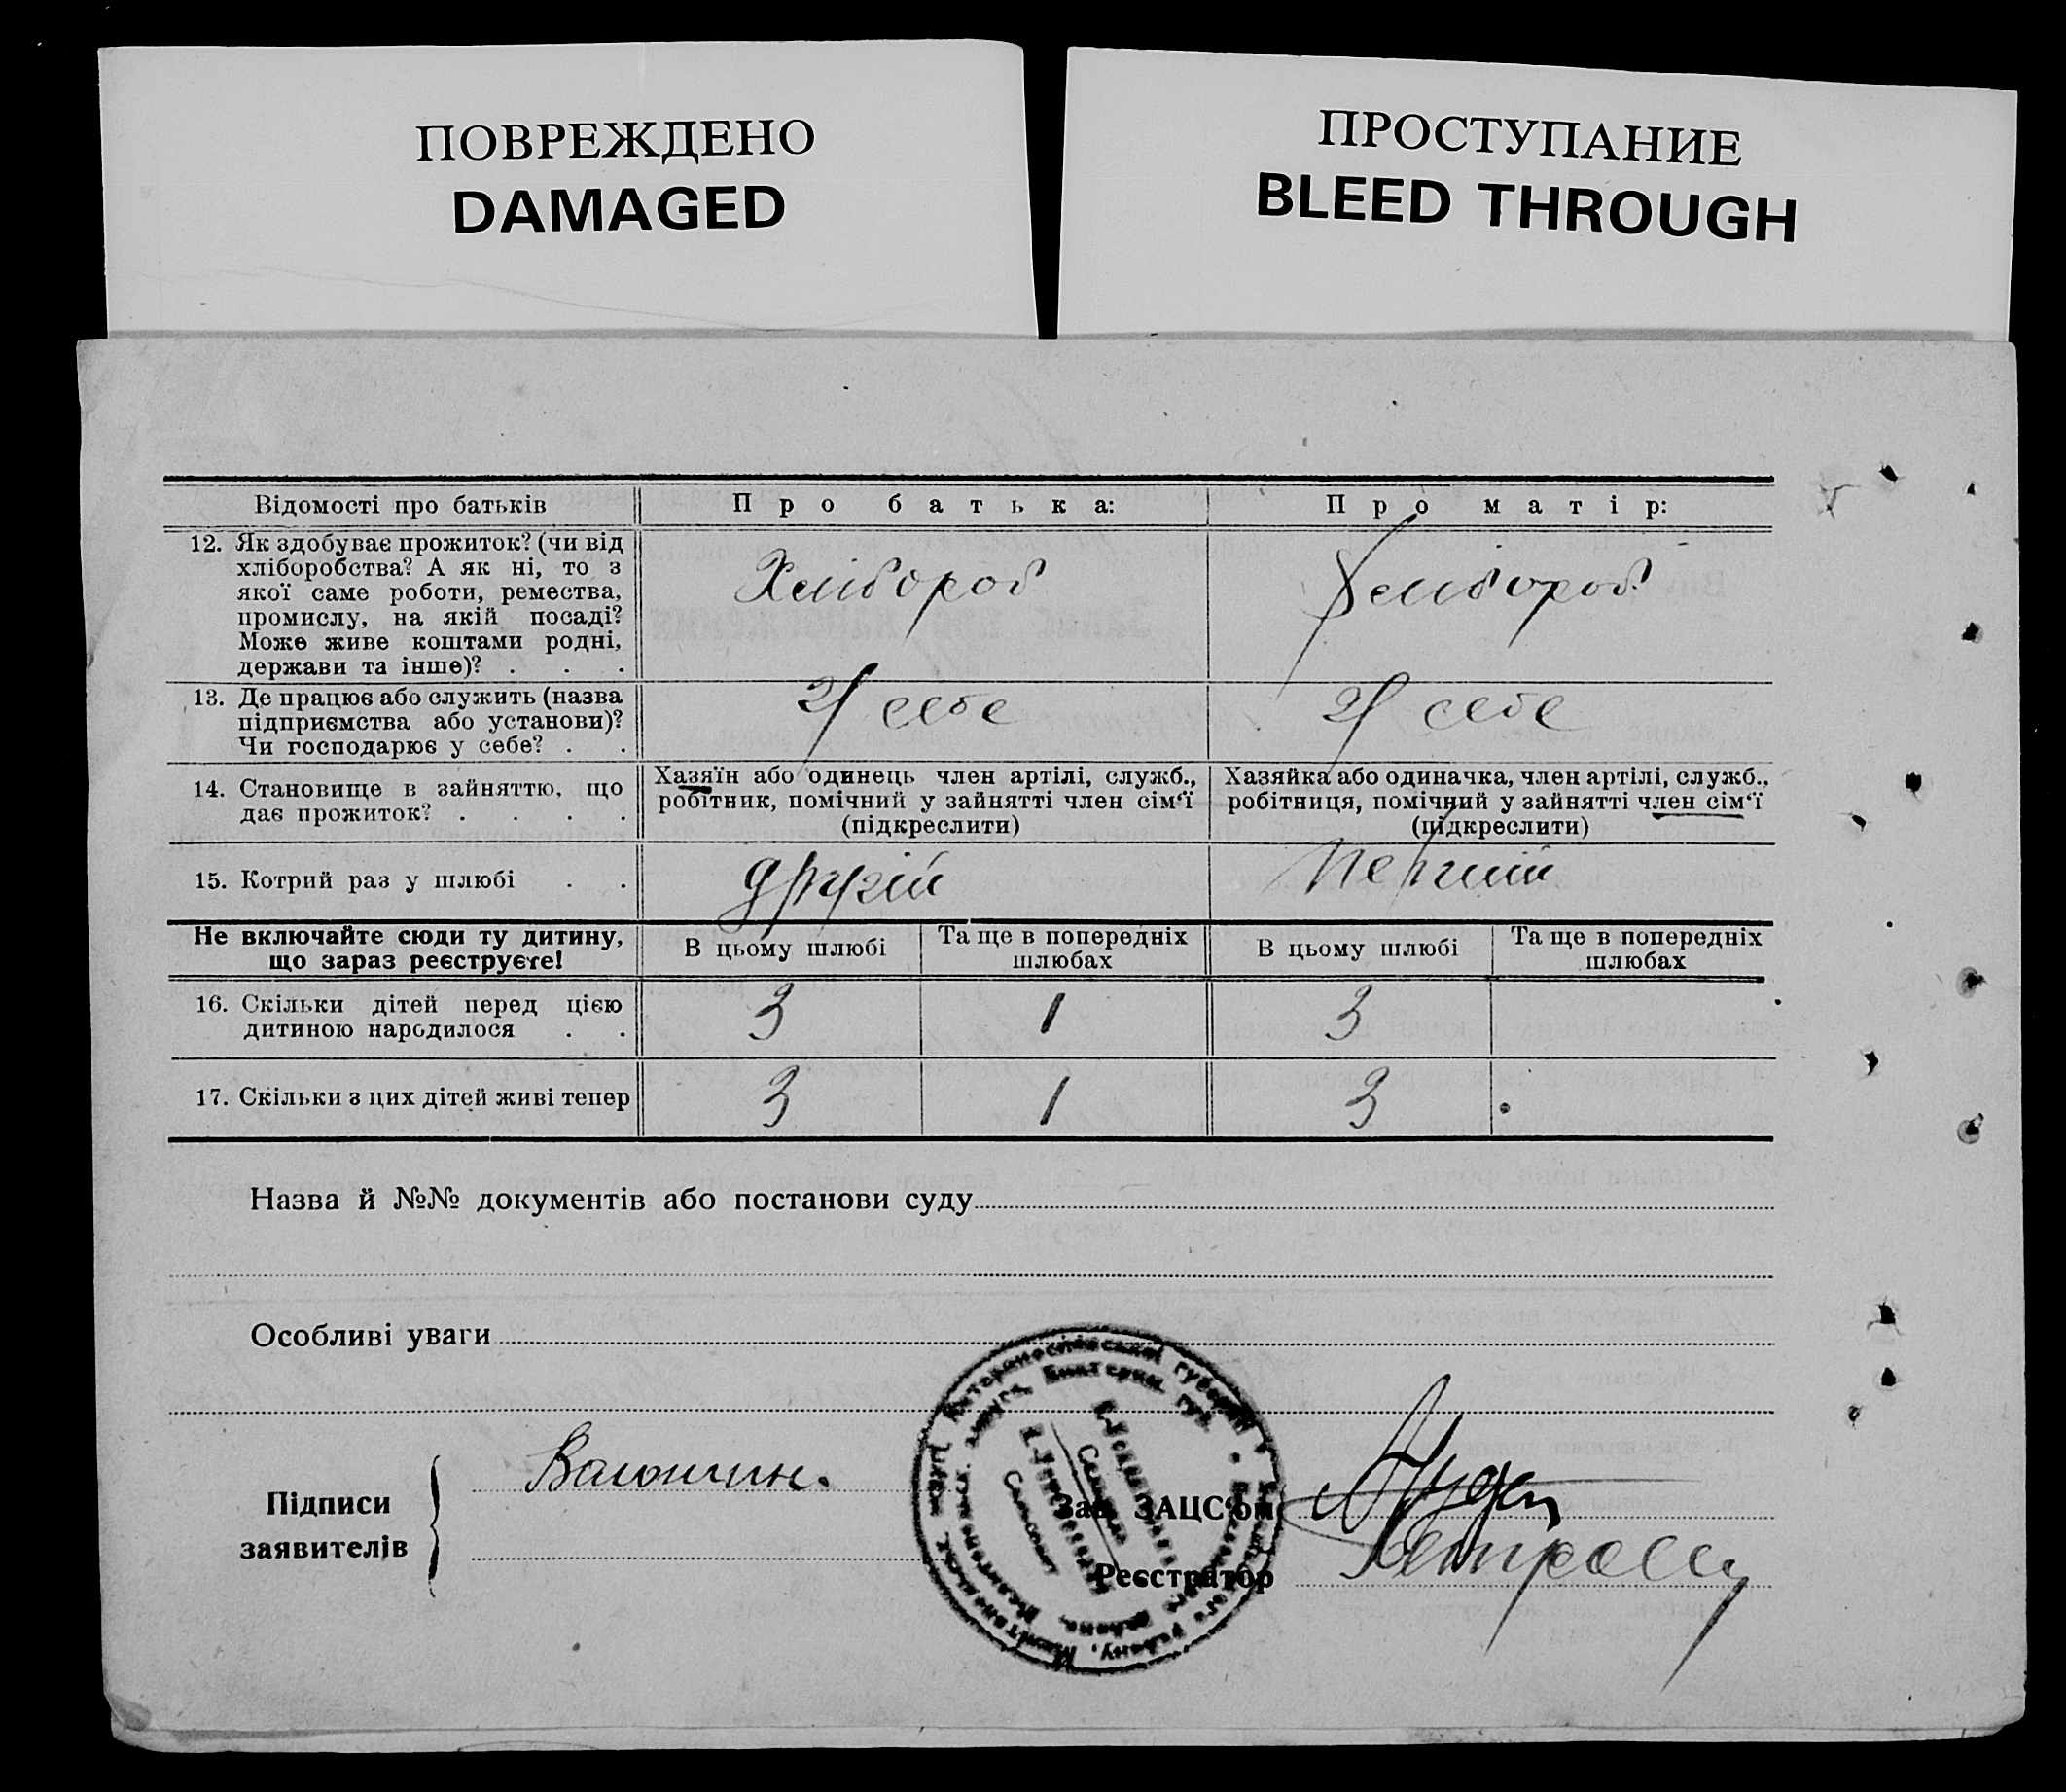 ПОВРЕЖДЕНО
DAMAGED
ПРОСТУПАНИЕ
BLEED THROUGH
Відомості про батьків
Про батька:
Про матір:
12. Як здобуває прожиток? (чи від
хліборобства? А як ні, то з
якої саме роботи, ремества,
промислу, на якій посаді?
Може живе коштами родні,
держави та інше)? . . .
Хлібороб
Хлібороб
13. Де працює або служить (назва
підприємства або установи)?
Чи господарює у себе? . .
У себе
У себе
14. Становище в зайняттю, що
дає прожиток? . . . .
Хазяїн або одинець член артілі, служб.,
робітник, помічний у зайнятті член сім‘ї
(підкреслити)
Хазяйка або одиначка, член артілі, служб.,
робітниця, помічний у зайнятті член сім‘ї
(підкреслити)
15. Котрий раз у шлюбі . .
другій
Першій
Не включайте сюди ту дитину,
що зараз реєструєте!
В цьому шлюбі
Та ще в попередніх
шлюбах
В цьому шлюбі
Та ще в попередніх
шлюбах
16. Скільки дітей перед цією
дитиною народилося . .
3
1
3
17. Скільки з цих дітей живі тепер
3
1
3
Назва й №№ документів або постанови суду
Особливі уваги
Підписи
заявителів
Зав. ЗАЦС'ом
Реєстратор